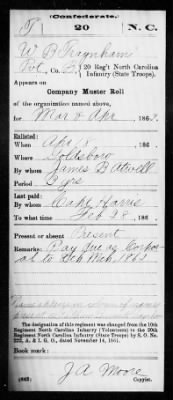 (Confederate.)
T 20 N.C.
W B Traynham
Pvt, Co. 20 Reg't North Carolina
Infantry (State Troops)
Appears on
Company Muster Roll
of the organization named above,
for Mar & Apr, 186
Enlisted:
When Apr, 186
Where Goldsboro
By whom James B Atwell
Period 2 yrs
Last paid:
By whom Harris
To what time Feb 28, 186
Present or absent Present
Remarks: Pay due as Corpor-
al to 1862
The designation of this regiment was changed from the 10th
Regiment North Carolina Infantry (Volunteers) to the 20th
Regiment North Carolina Infantry (State Troops) by S. O. No.
222, A. & I. G. O., dated November 14, 1861.
Book mark:
J A Moore
(642) Copyist.